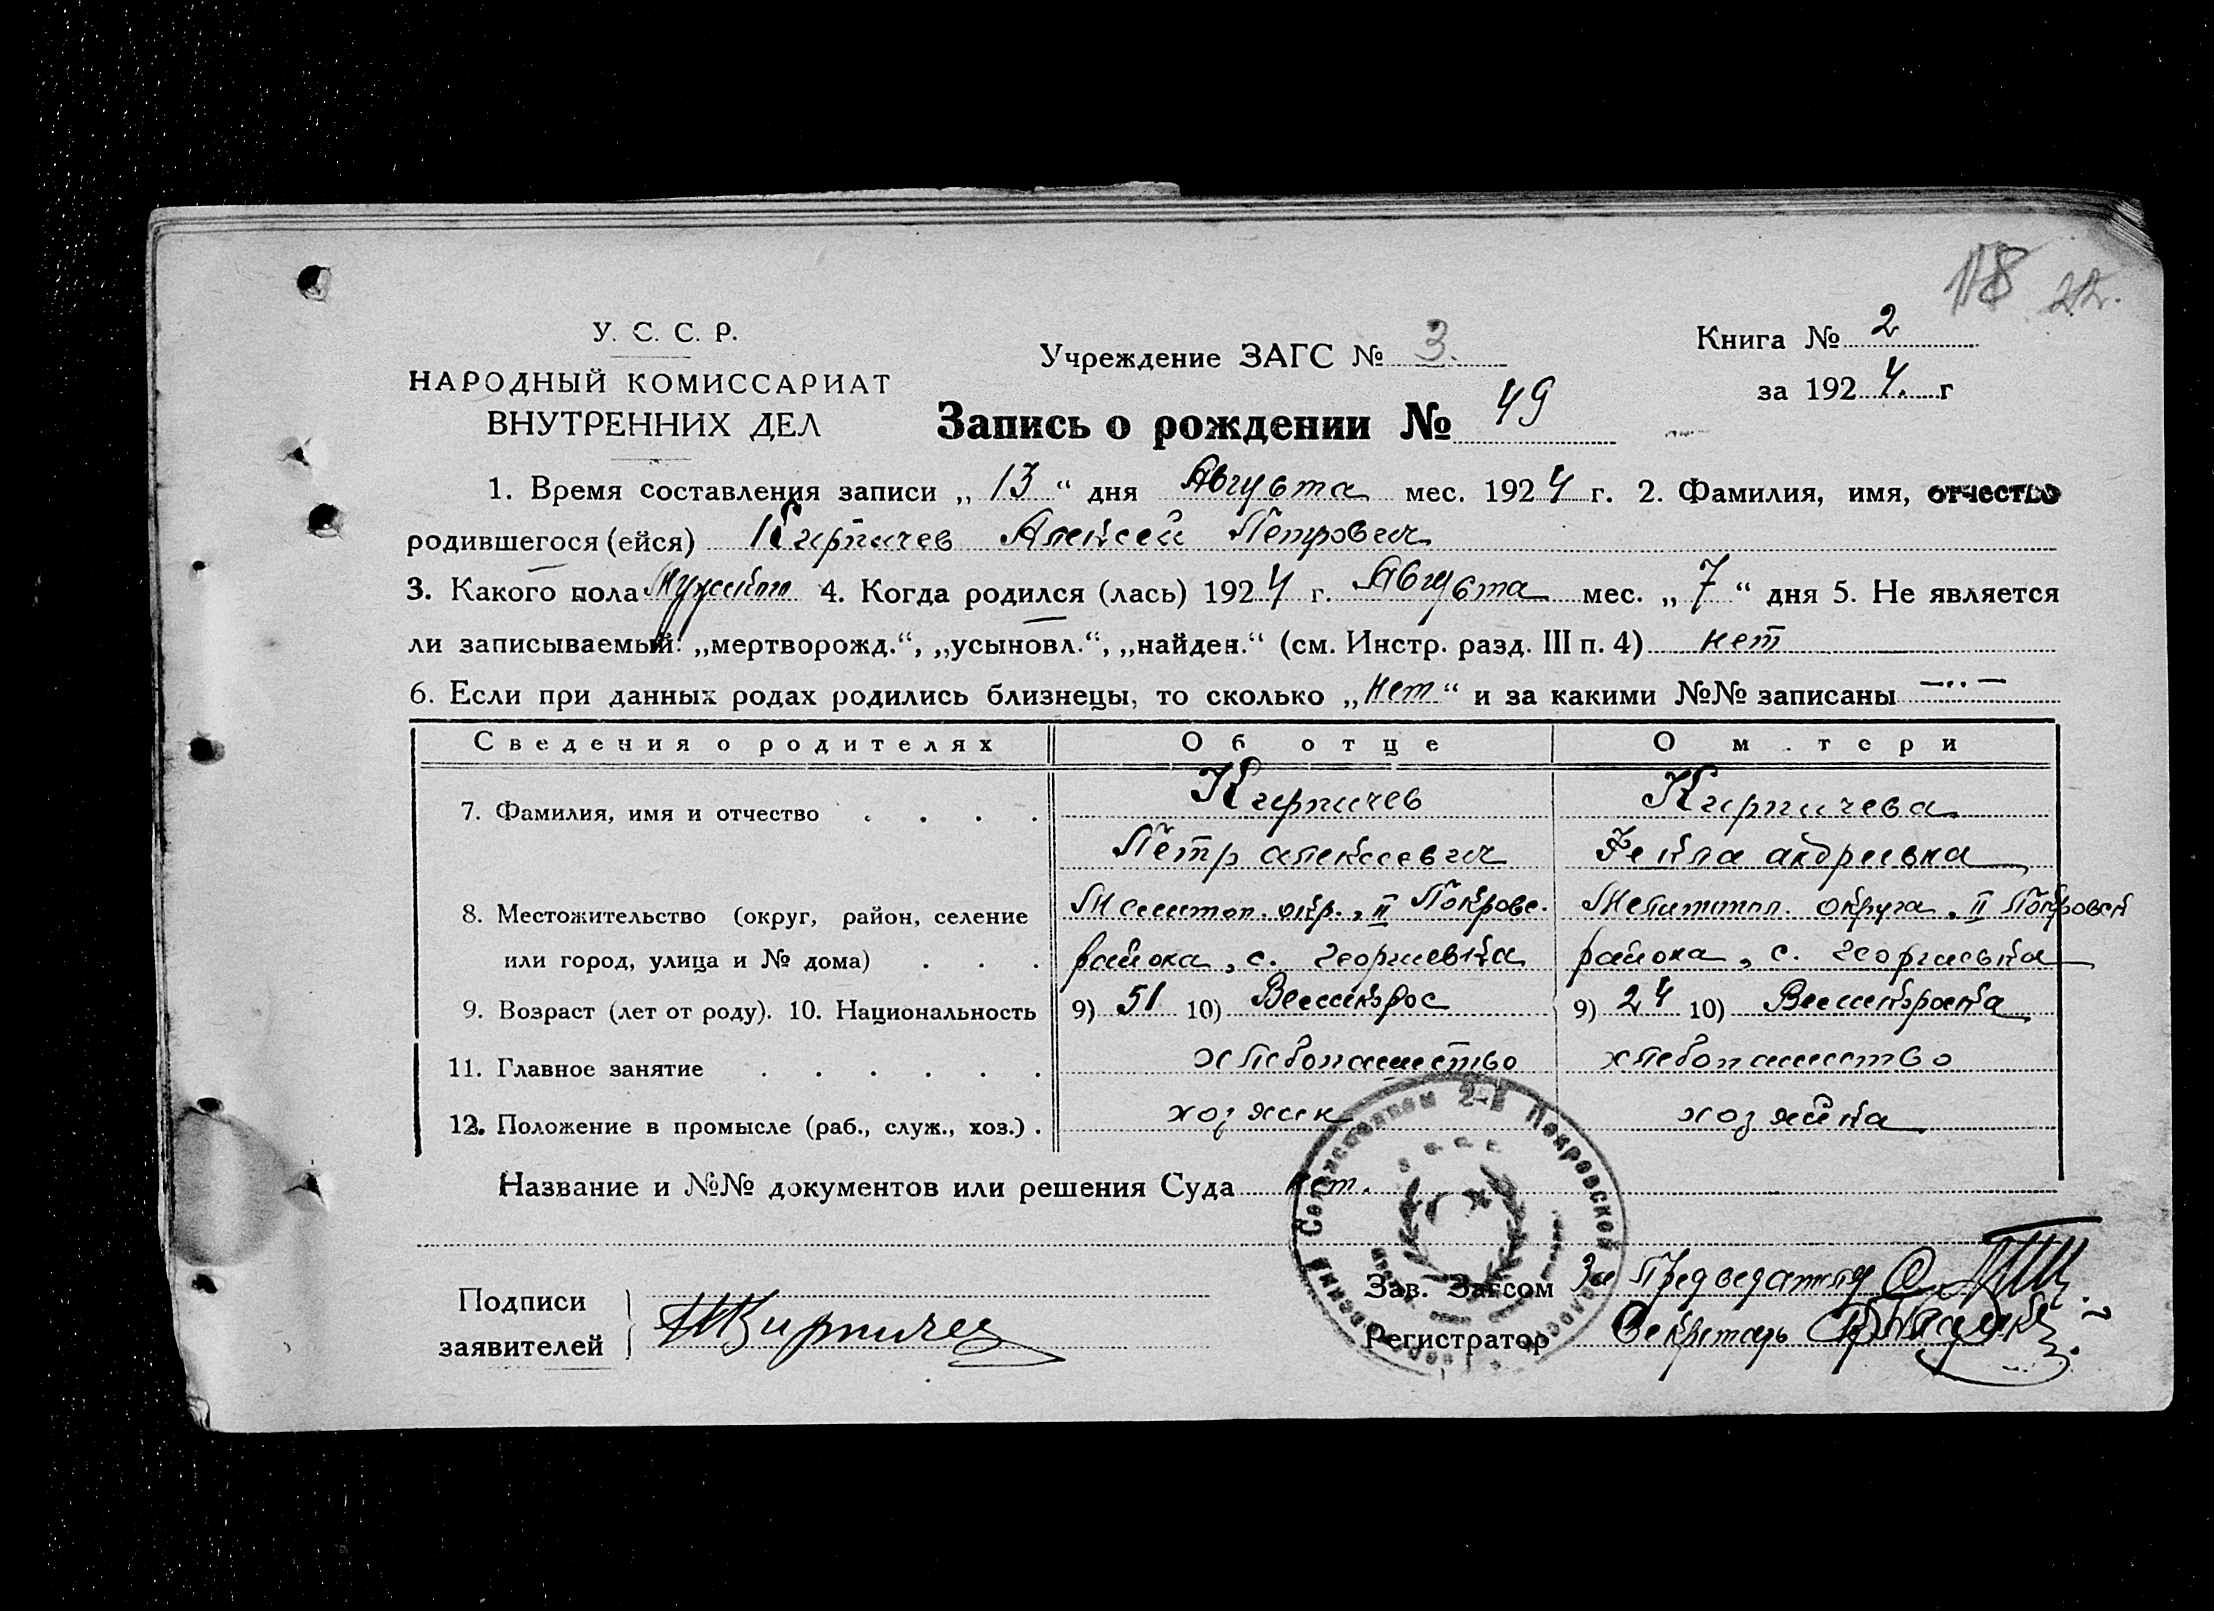 118 22.
У. С. С. Р.
НАРОДНЫЙ КОМИССАРИАТ
ВНУТРЕННИХ ДЕЛ
Учреждение ЗАГС № 3.
Книга № 2
за 1924. г
Запись о рождении № 49
1. Время составления записи „ 13 “ дня Августа мес. 1924 г. 2. Фамилия, имя, отчество
родившегося (ейся) Кирпичев Алексей Петрович
3. Какого пола Мужского 4. Когда родился (лась) 1924 г. Августа мес. „ 7 “ дня 5. Не является
ли записываемый: „мертворожд.“, „усыновл.“, „найден.“ (см. Инстр. разд. III п. 4) нет
6. Если при данных родах родились близнецы, то сколько „нет“ и за какими №№ записаны —„—
Сведения о родителях Об отце О м.тери
7. Фамилия, имя и отчество Кирпичев Кирпичева
Петр алексеевич Фекла андреевна
8. Местожительство (округ, район, селение Мелитоп. окр., II Покровс. Мелитопол. округа, II Покровск
или город, улица и № дома) района, с. Георгиевка района, с. Георгиевка
9. Возраст (лет от роду). 10. Национальность 9) 51 10) Великорос 9) 24 10) Великороска
11. Главное занятие хлебопашество хлебопашество
12. Положение в промысле (раб., служ., хоз.) хозяин хозяйка
Название и №№ документов или решения Суда нет.
2-й Покровской волос
Подписи
заявителей
Кирпичев
Зав. Загсом За Председателя
Регистратор Секретарь